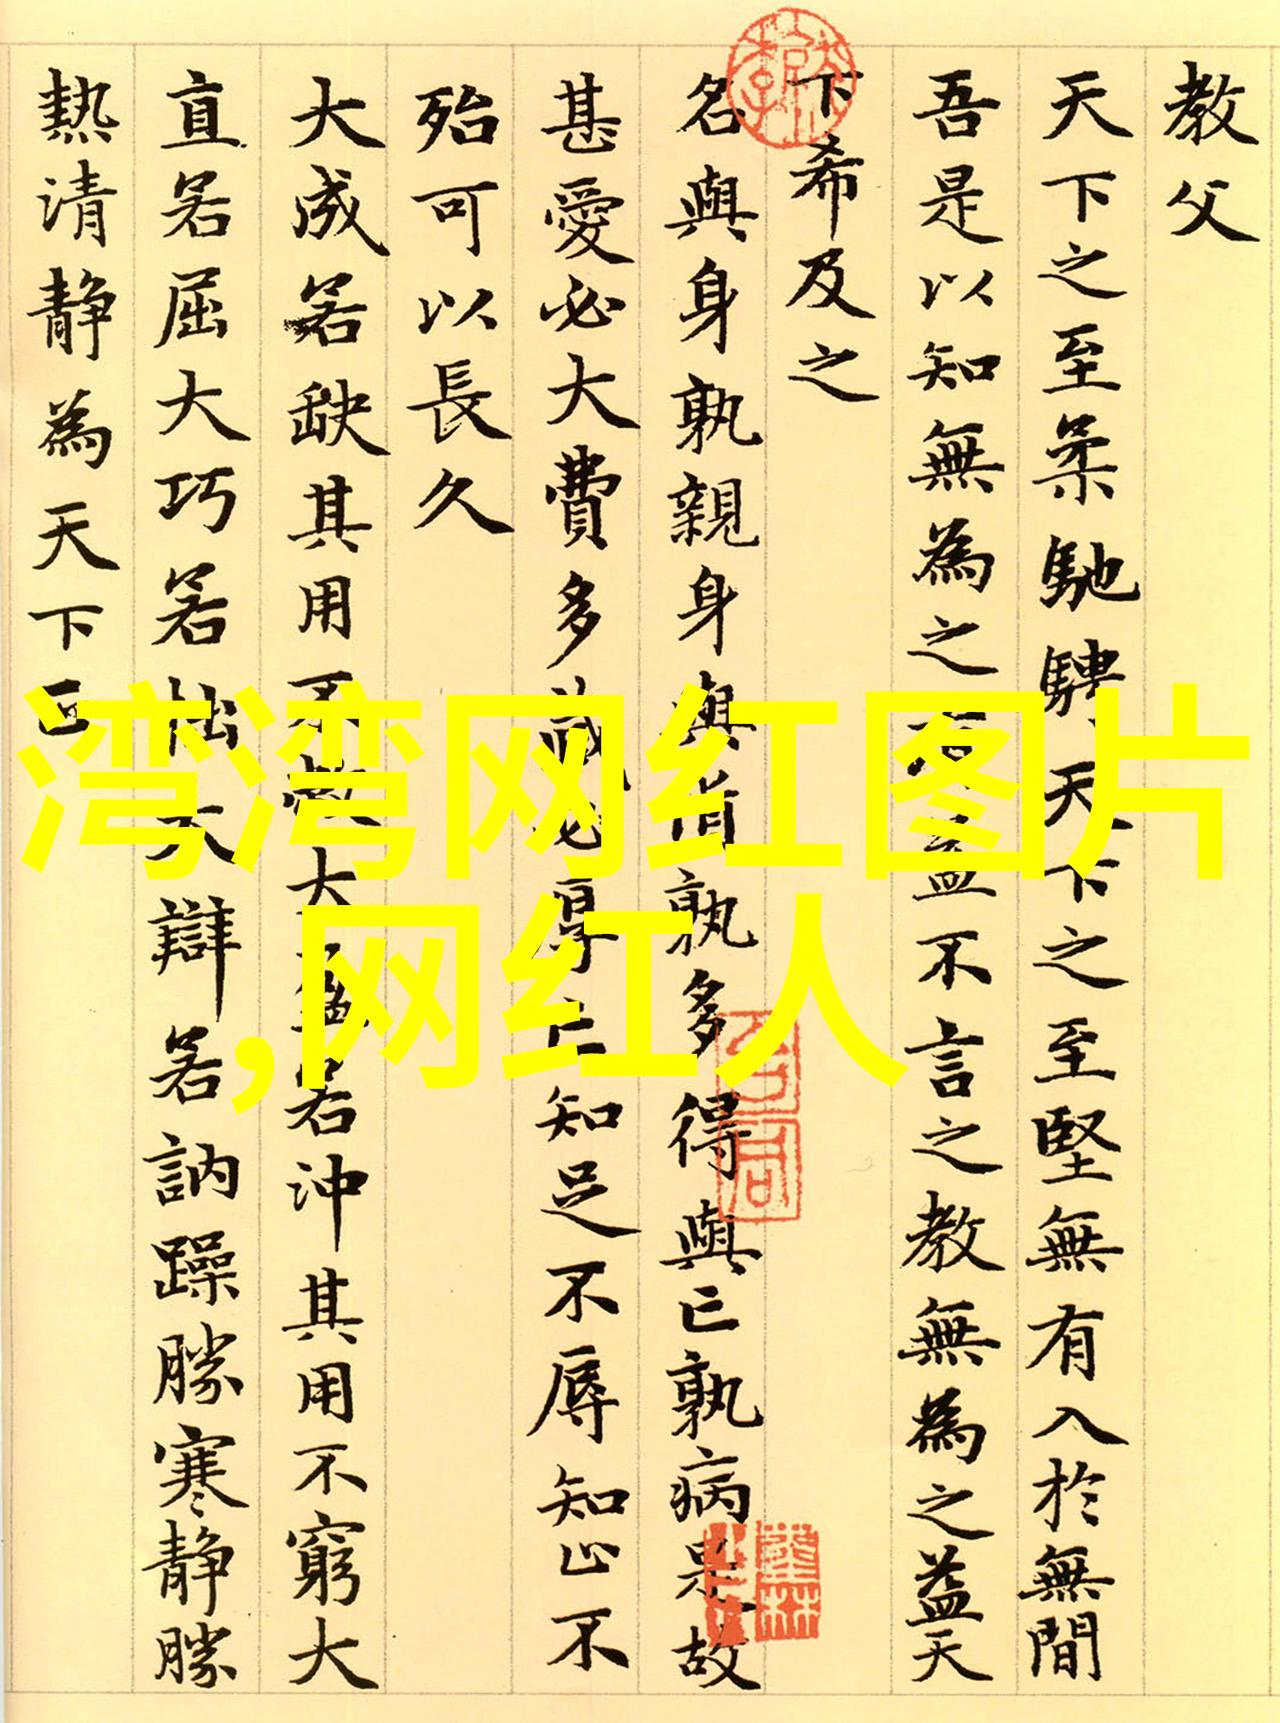 教父
天下之至柔馳騁天下之至堅無有入於無間
吾是以知無為之有益不言之教無為之益天
下希及之
名與身孰親身與貨孰多得與亡孰病是故
甚愛必大費多藏必厚亡知足不辱知止不
殆可以長久
大成若缺其用不敝大盈若沖其用不窮大
直若屈大巧若拙大辯若訥躁勝寒靜勝
熱清靜為天下正
湾湾网红图片
,网红人